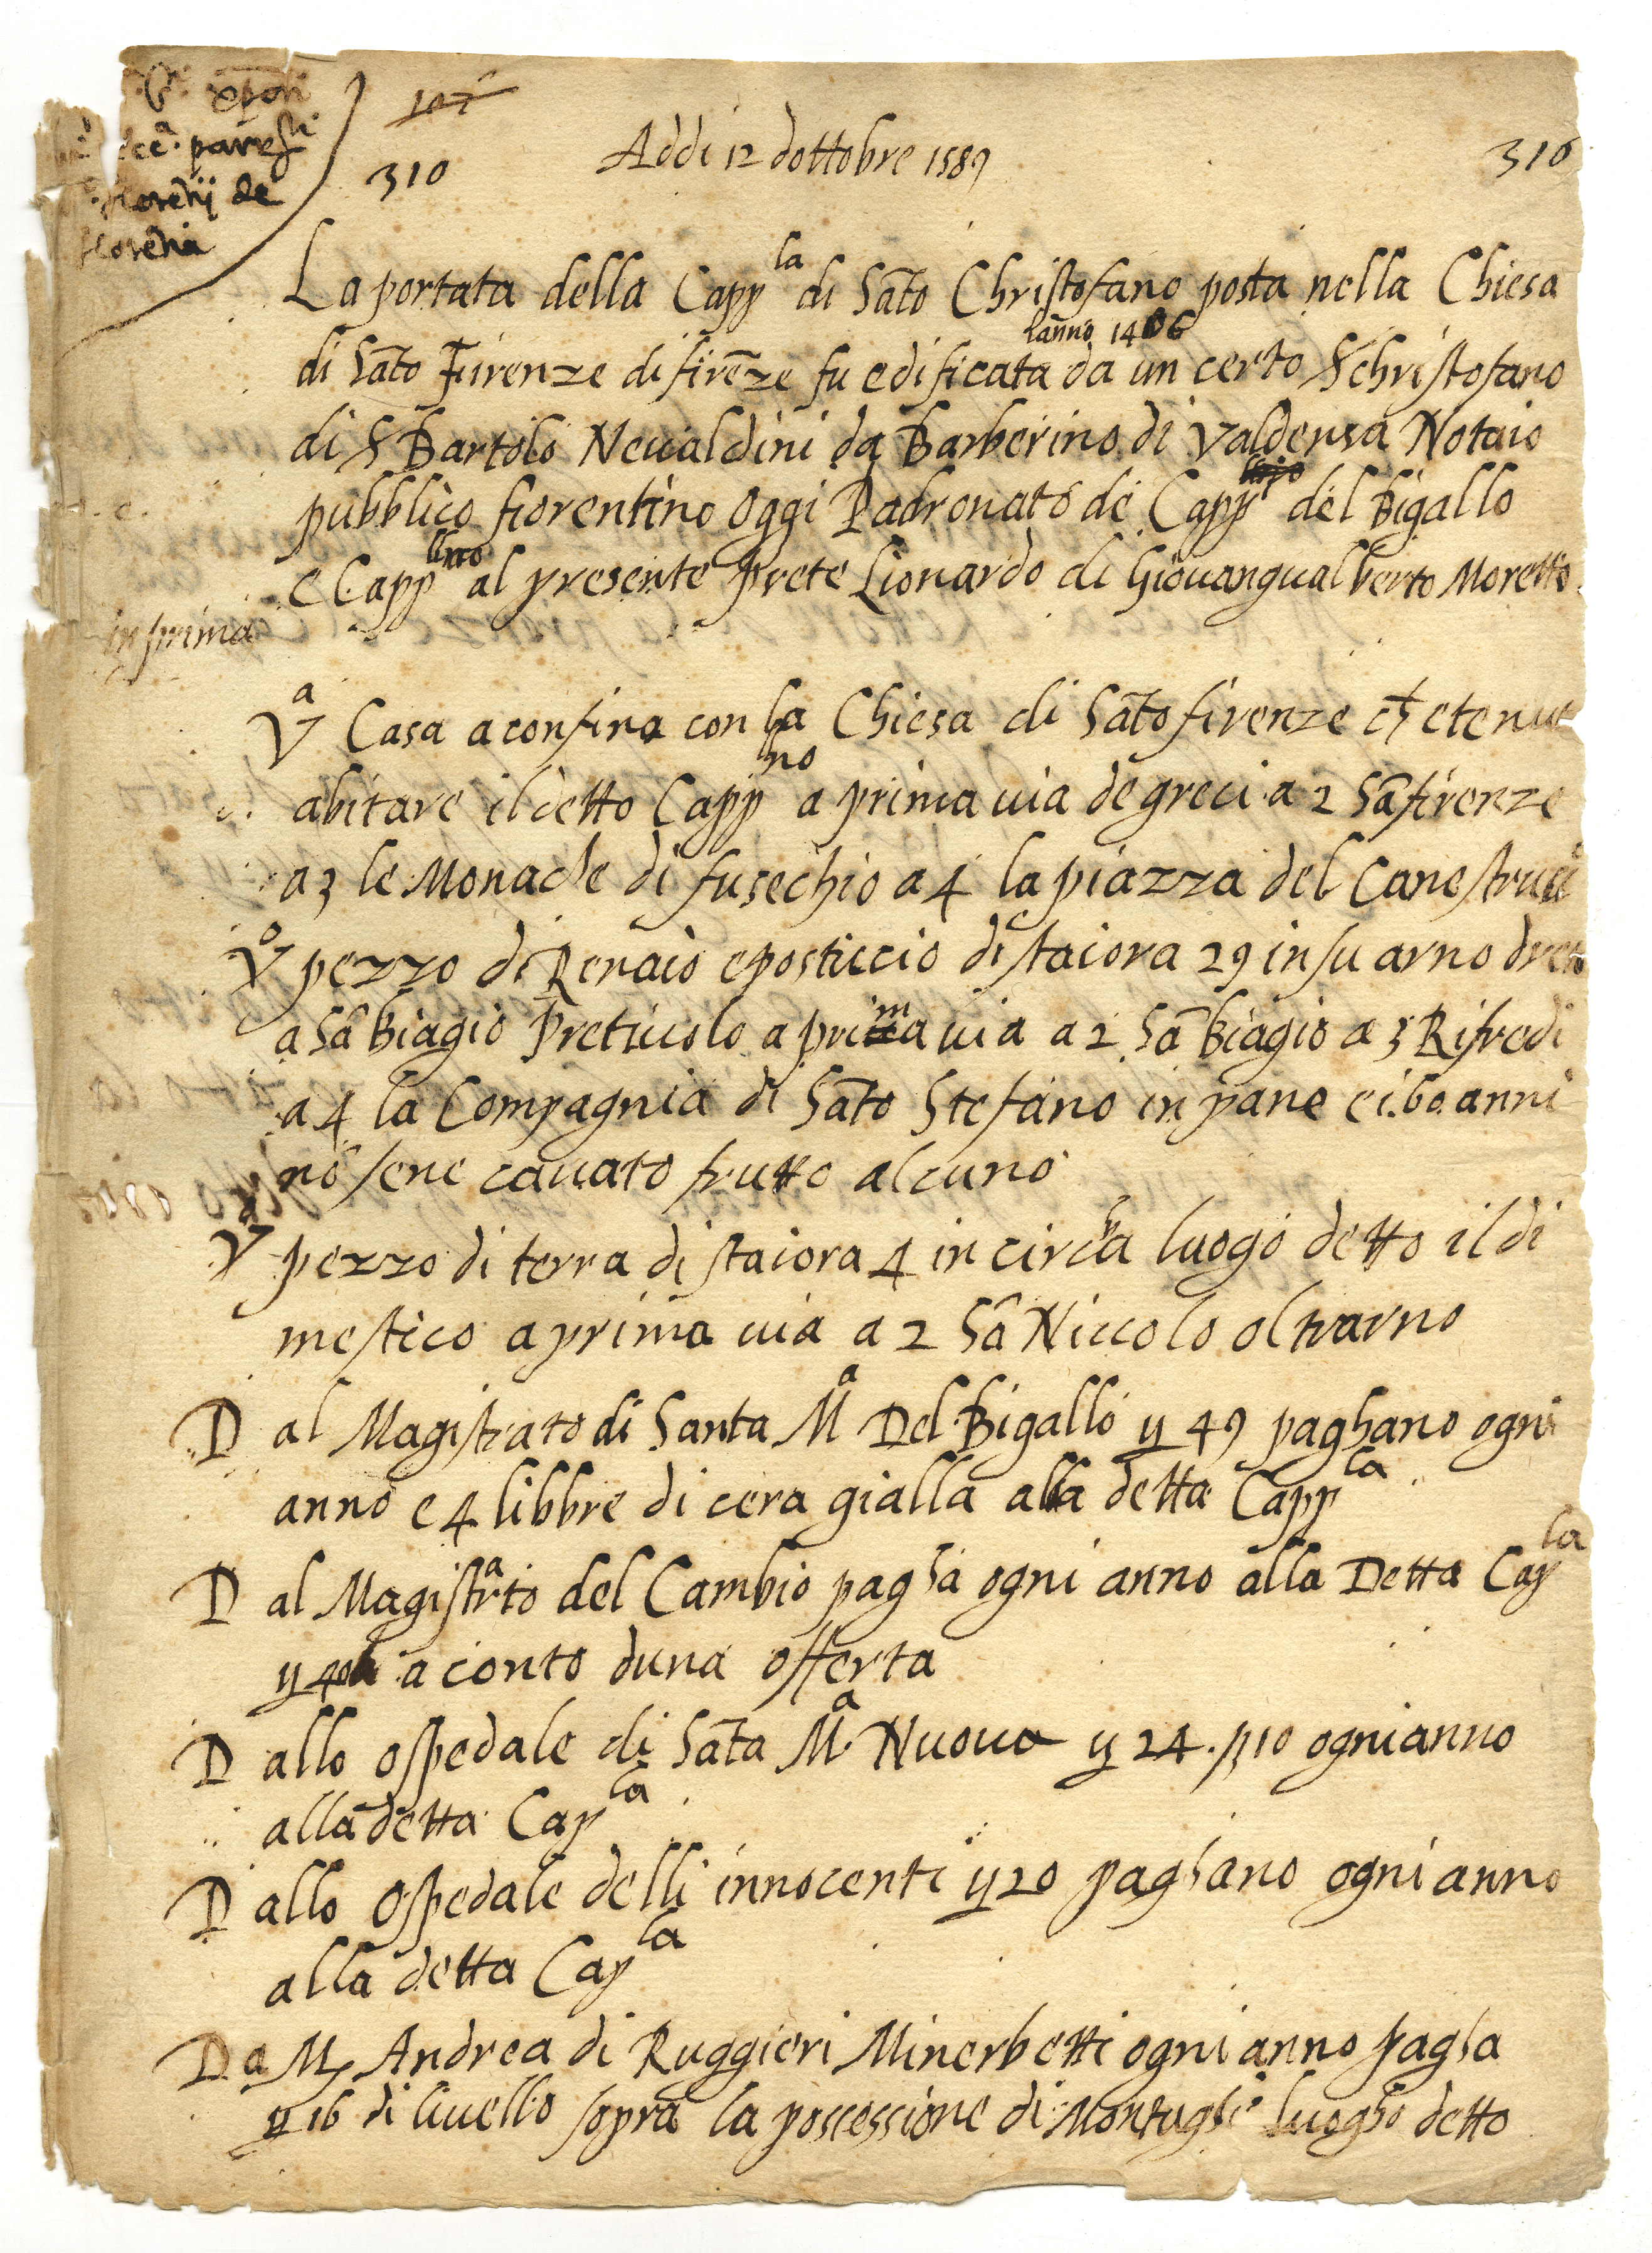 epoh
ecc.ª paresti
florētij de
florētia
107
310
Addi 12 dottobre 1589
310
La portata della Capp la di Sāto Christofano posta nella Chiesa
lāno 1406
di Sāto Firenze di firēze fu edificata da un certo S Christofano
di S Bartolo Neualdini da Barberino di Valdensa Notaio
pubblico fiorentino oggi Padronato de Capp del Bigallo
e Capp no al presente prete Lionardo di Giouangualberto Moretto
in prima
Vª Casa a confina con la Chiesa di Sāto firenze che tenue
abitare il detto Capp no a prima uia de greci a 2 Sā firenze
a 3 le Monache di fusechio a 4 la piazza del Canestruci
Vº pezzo di Renaio e posticcio di staiora 29 in su arno dreto
a Sā Biagio Preticcolo a prima uia a 2 Sā Biagio a 3 Rifredi
a 4 la Compagnia di Sāto Stefano in pane e i. 60. anni
nō sene cauato frutto alcuno
Vº pezzo di terra di staiora 4 in circha luogo detto il di
mestico a prima uia a 2 Sā Niccolo oltrarno
D al Magistrato di Santa Mª Del Bigallo y 49 paghano ogni
anno e 4 libbre di cera gialla alla detta Capp la
D al Magistrato del Cambio pagha ogni anno alla Detta Cap la
a conto duna offerta
D allo ospedale di Sāta Mª Nuoua y 24. β 10 ogni anno
alla detta Cap la
D allo Ospedale delli innocenti y 20 paghano ogni anno
alla detta Cap la
Da M Andrea di Ruggieri Minerbetti ogni anno pagha
y 16 di liuello sopra la possessione di Montughi luogho detto